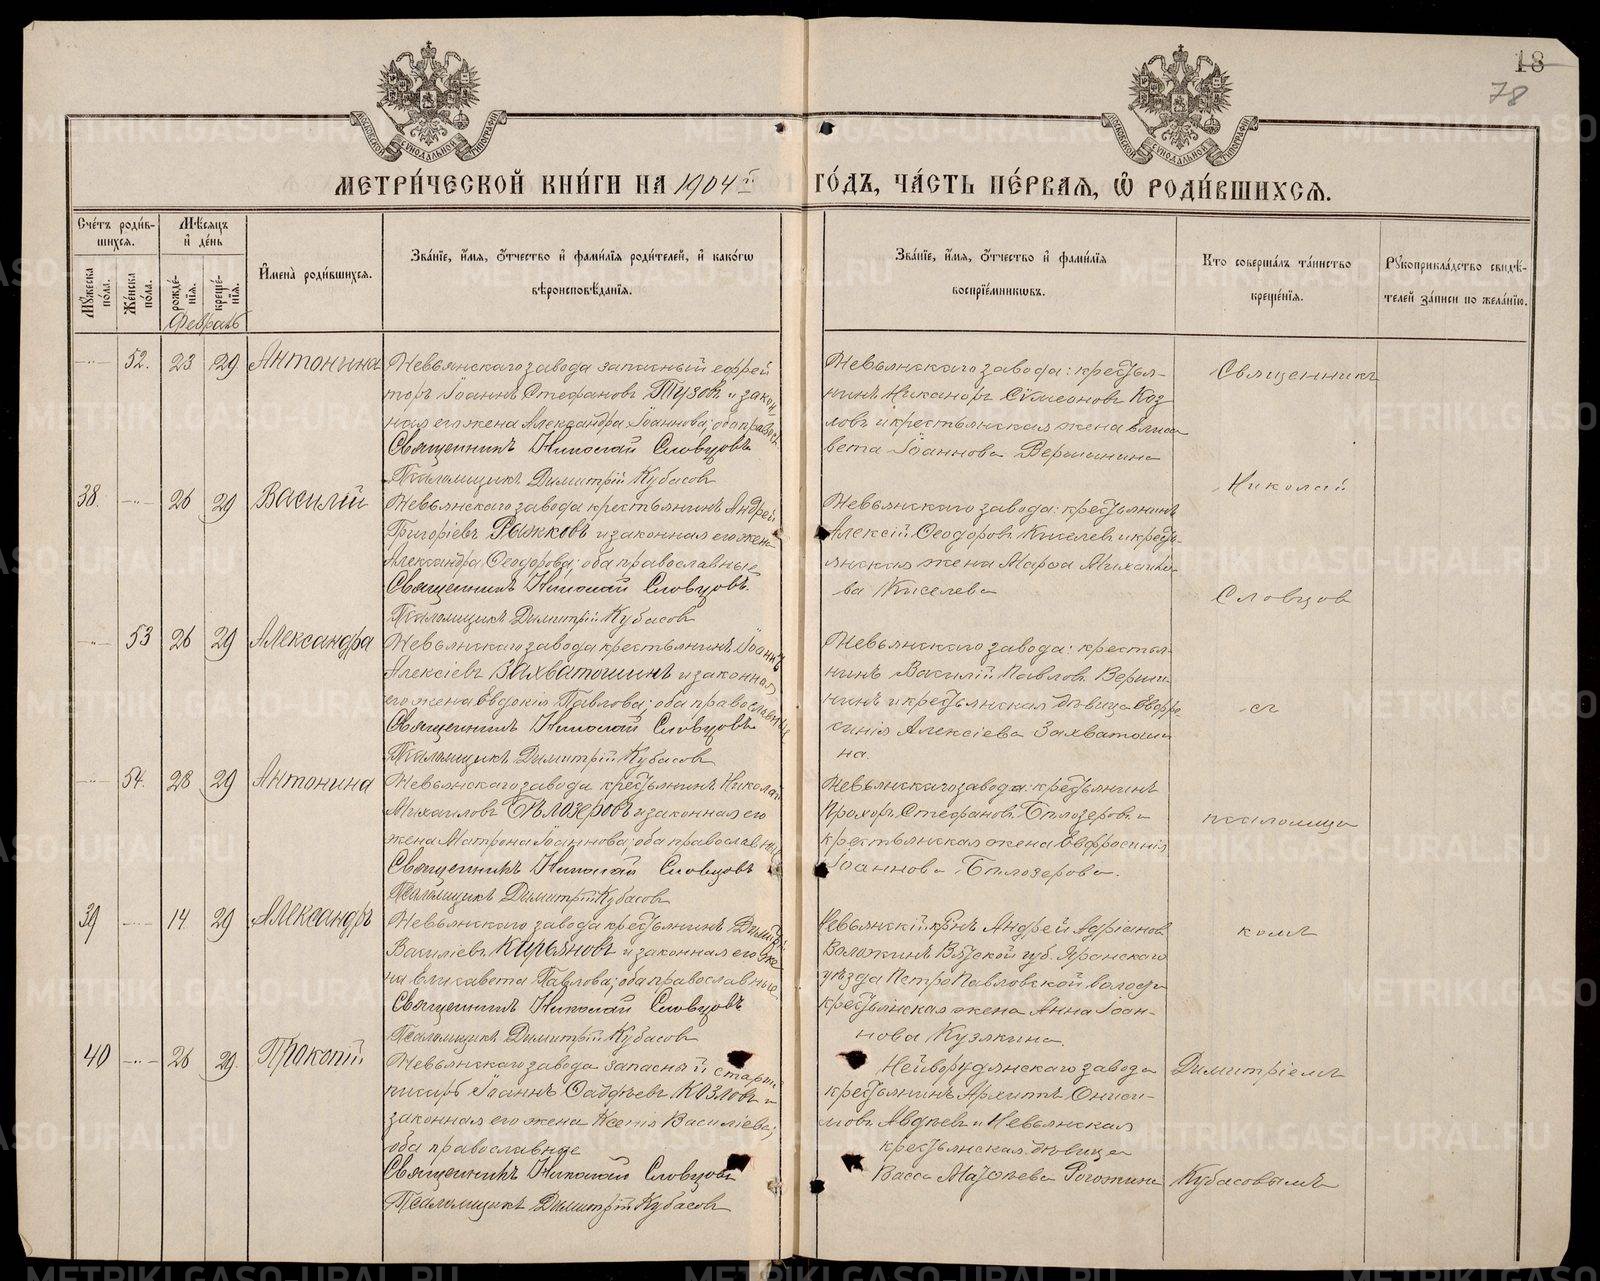 18
78
МОСКОВСКОЙ СѴНОДАЛЬНОЙ ТИПОГРАФІИ
МОСКОВСКОЙ СѴНОДАЛЬНОЙ ТИПОГРАФІИ
МЕТРИ́ЧЕСКОЙ КНИ́ГИ НА 1904й ГО́ДЪ, ЧА́СТЬ ПЕ́РВАѦ, Ѽ РОДИ́ВШИХСѦ.
Сче́тъ роди́в-
шихся.
Му́жеска по́ла.
Же́нска по́ла.
Мѣ́сяцъ
и҆ де́нь
рожде́-
нія.
креще́-
нія.
Февраль
И҆мена̀ роди́вшихся.
Зва́ніе, и҆́мя, ѻ҆́тчество и҆ фами́лія роди́телей, и҆ како́гѡ
вѣроисповѣ́данія.
Зва́ніе, и҆́мя, ѻ҆́тчество и҆ фами́лія
воспріе́мниковъ.
Кто соверша́лъ та́инство
креще́нія.
Рукоприкла́дство свидѣ́-
телей за́писи по жела́нію.
52. 23 29 Антонина
Невьянскаго завода запасный ефрей
торъ Іоаннъ Стефановъ Тузовъ и закон-
ная его жена Александра Іоаннова; оба правосл
Священникъ Николай Словцовъ
Псаломщикъ Димитрій Кубасов
Невьянскаго завода: крестья-
нинъ Никаноръ Сѵмеоновъ Коз
ловъ и крестьянская жена Елиса
вета Іоаннова Вершинина
38. 26 29 Василій
Невьянскаго завода крестьянинъ Андрей
Григоріевъ Рыжковъ и законная его жена
Александра Ѳеодорова; оба православные
Священникъ Николай Словцовъ.
Псаломщикъ Димитрій Кубасов
Невьянскаго завода: крестьянинъ
Алексій Ѳеодоровъ Киселевъ и кресть-
янская жена Марѳа Михайло-
ва Киселева
53 26 29 Александра
Невьянскаго завода крестьянинъ Іоаннъ
Алексіевъ Захватошинъ и законная
его жена Евдокія Павлова; оба православные
Священникъ Николай Словцовъ
Псаломщикъ Димитрій Кубасов
Невьянскаго завода: крестья-
нинъ Василій Павловъ Верши-
нинъ и крестьянская дѣвица Евфро
синія Алексіева Захватоши
на.
54. 28 29 Антонина
Невьянскаго завода крестьянинъ Николай
Михаиловъ Бѣлозеровъ и законная его
жена Матрона Іоаннова; оба православные
Священникъ Николай Словцовъ
Псаломщикъ Димитрій Кубасов
Невьянскаго завода: крестьянинъ
Прохоръ Стефановъ Бѣлозеровъ и
крестьянская жена Евфросинія
Іоаннова Бѣлозерова.
39 14 29 Александръ
Невьянскаго завода крестьянинъ Димитрій
Василіевъ Кирьяновъ и законная его же
на Елисавета Павлова; оба православные
Священникъ Николай Словцовъ
Псаломщикъ Димитрій Кубасов
Невьянскій кр̃нъ Андрей Адріанов
Воложинъ Вятской губ. Яранскаго
уѣзда Петропавловской волости
крестьянская жена Анна Іоан-
нова Кузякина.
40 26 29. Прокопій
Невьянскаго завода запасный старш
писарь Іоаннъ Ѳаддѣевъ Козловъ и
законная его жена Ксенія Василіева;
оба православные
Священникъ Николай Словцовъ
Псаломщикъ Димитрій Кубасов
Нейворудянскаго завода
крестьянинъ Архиппъ Ониси-
мовъ Авдѣевъ и Невьянская
крестьянская дѣвица
Васса Матѳеева Рогожина
Священникъ
Николай
Словцов
съ
псаломщи
комъ
Димитріемъ
Кубасовымъ